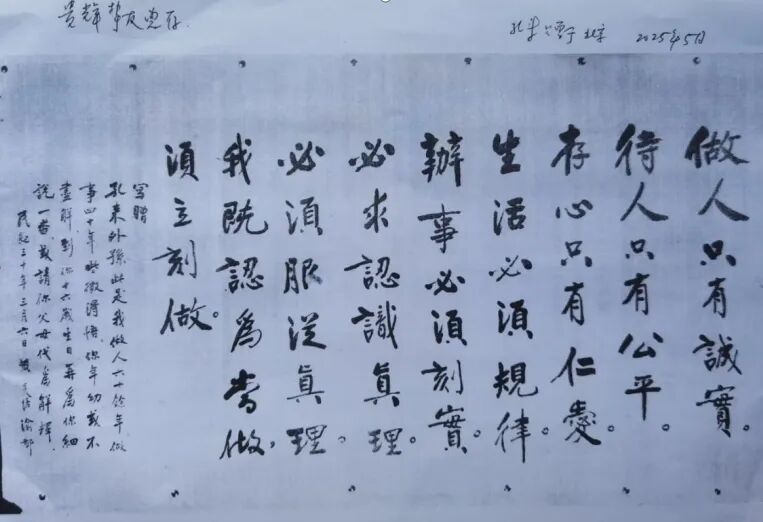 贵辉挚友惠存
孔来 于北京 2025年5月
做人只有誠實。
待人只有公平。
存心只有仁愛。
生活必須規律。
辦事必須刻實。
必求認識真理。
必須服從真理。
我既認爲當做，
須立刻做。
寫贈
孔來外孫此是我做人六十餘年做
事四十年些微得悟你年幼或不
盡解到你十六歲生日再爲你細
說一番或請你父母代爲解釋
民紀三十年三月六日 渝都